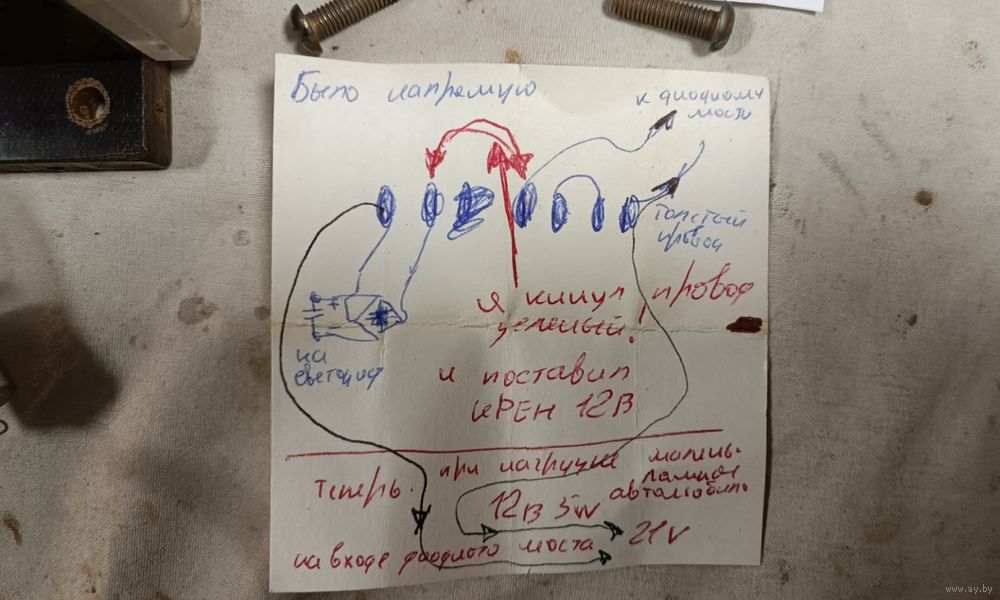 Было напрямую
к диодному
мосту
толстый
провод
я кинул провод
зеленый!
и поставил
КРЕН 12В
+
-
на
светодиод
Теперь
при нагрузке малень.
лампое
автомобиль
12В 5W
21V
на входе диодного моста
www.ay.by